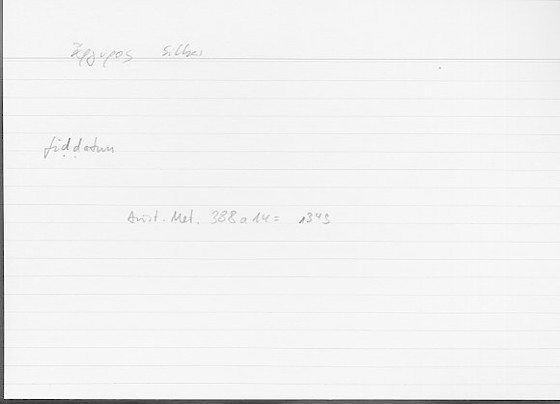 ἄργυρος Silber
fiḍḍatun
Arist. Met. 388a14 = 1343